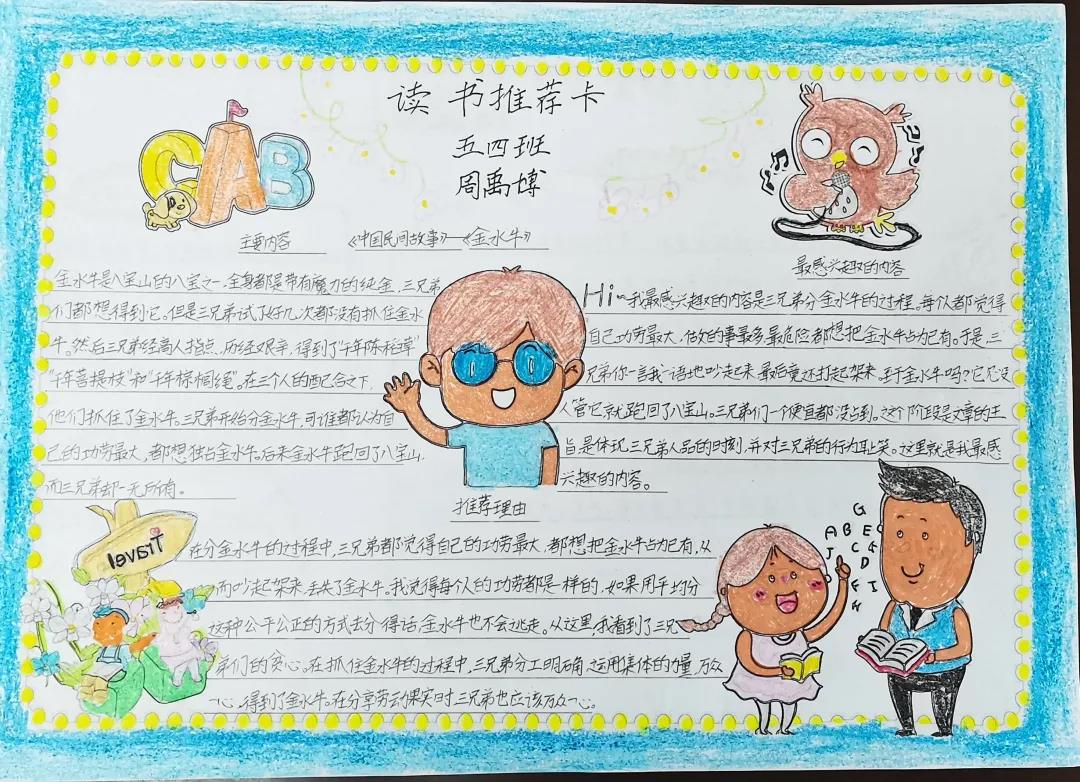 读书推荐卡
五四班
周禹博
CAB
主要内容
《中国民间故事》—《金水牛》
金水牛是八宝山的八宝之一,全身都是带有魔力的纯金,三兄弟
们都想得到它。但是三兄弟试了好几次都没有抓住金水
牛。然后三兄弟经高人指点,历经艰辛,得到了"千年陈稻草"
"千年菩提枝"和"千年棕榈绳"。在三个人的配合之下,
他们抓住了金水牛。三兄弟开始分金水牛,可谁都认为自
己的功劳最大,都想独占金水牛。后来金水牛跑回了八宝山,
而三兄弟却一无所有。
最感兴趣的内容
Hi~我最感兴趣的内容是三兄弟分金水牛的过程。每个人都觉得
自己功劳最大,做的事最多最危险都想把金水牛占为己有。于是,三
兄弟你一言我一语地吵起来,最后竟还打起架来。至于金水牛吗?它见没
人管它就跑回了八宝山。三兄弟们一个便宜都没占到。这个阶段是文章的主
旨是体现三兄弟人品的时刻,并对三兄弟的行为耻笑。这里就是我最感
兴趣的内容。
推荐理由
在分金水牛的过程中,三兄弟都觉得自己的功劳最大,都想把金水牛占为己有,从
而吵起架来,丢失了金水牛。我觉得每个人的功劳都是一样的,如果用平均分
这种公平公正的方式去分得话,金水牛也不会逃走。从这里,我看到了三兄
弟们的贪心。在抓住金水牛的过程中,三兄弟分工明确,运用集体的力量,万众
一心,得到了金水牛。在分享劳动果实时,三兄弟也应该万众一心。
Travel